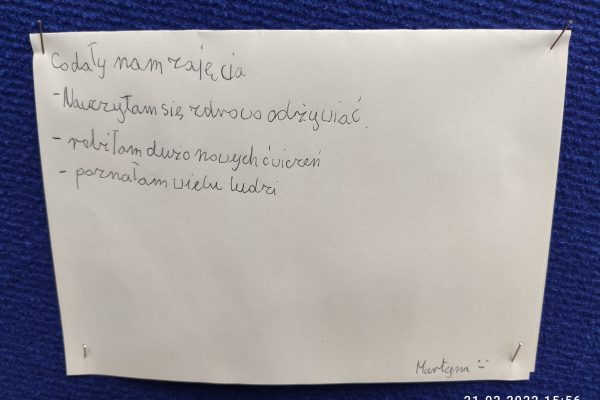 Co dały nam zajęcia
- Nauczyłam się zdrowo odżywiać.
- robiłam dużo nowych ćwiczeń
- poznałam wielu ludzi
Martyna :)